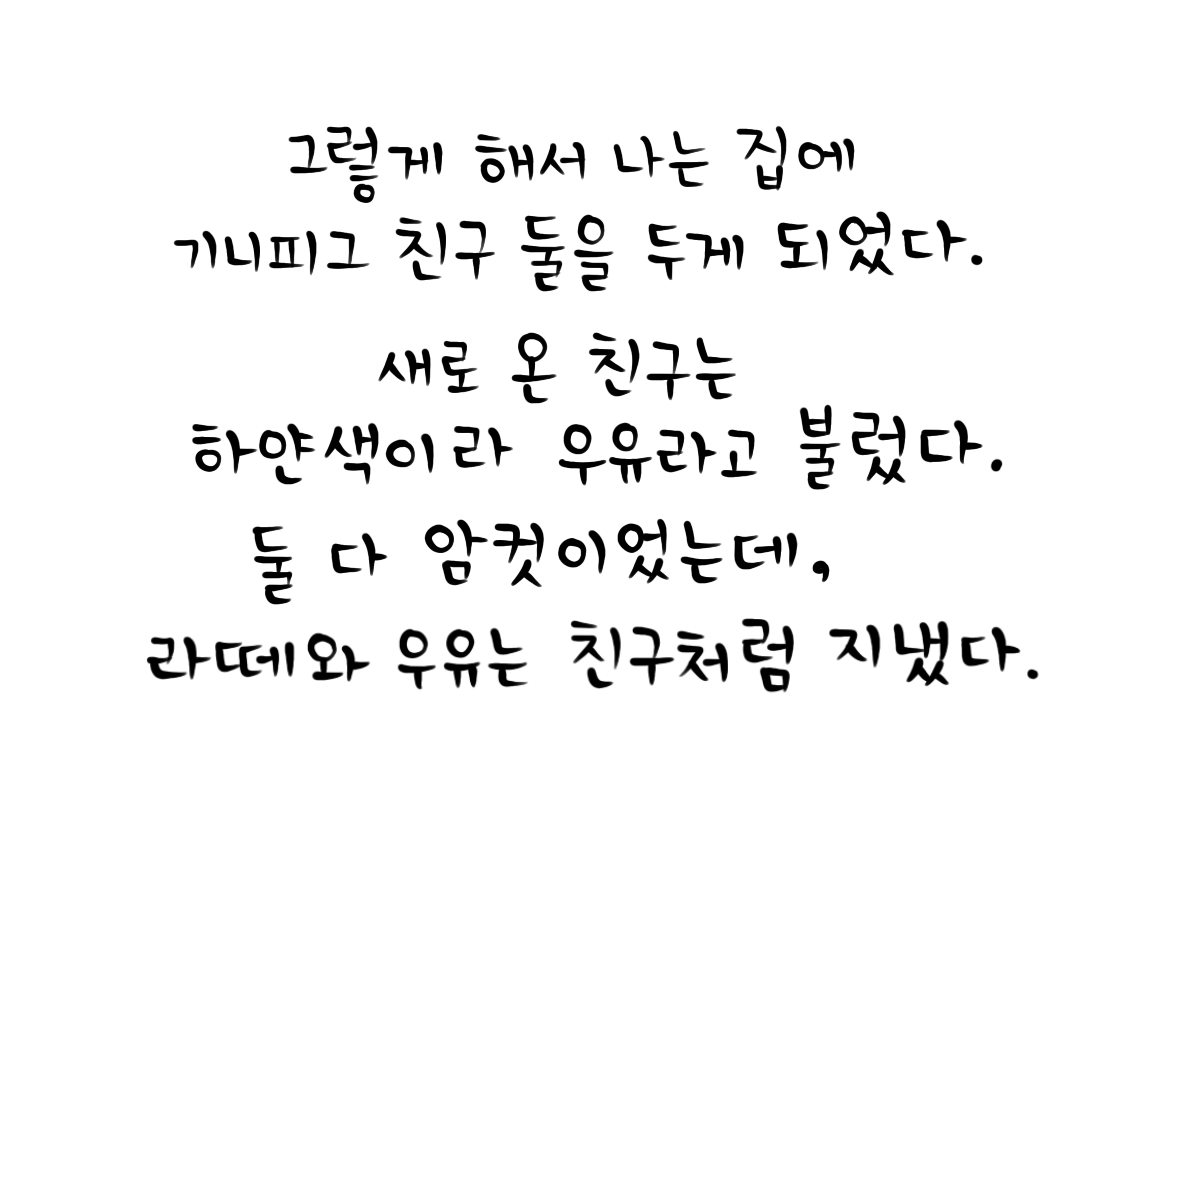 그렇게 해서 나는 집에
기니피그 친구 둘을 두게 되었다.
새로 온 친구는
하얀색이라 우유라고 불렀다.
둘 다 암컷이었는데,
라떼와 우유는 친구처럼 지냈다.